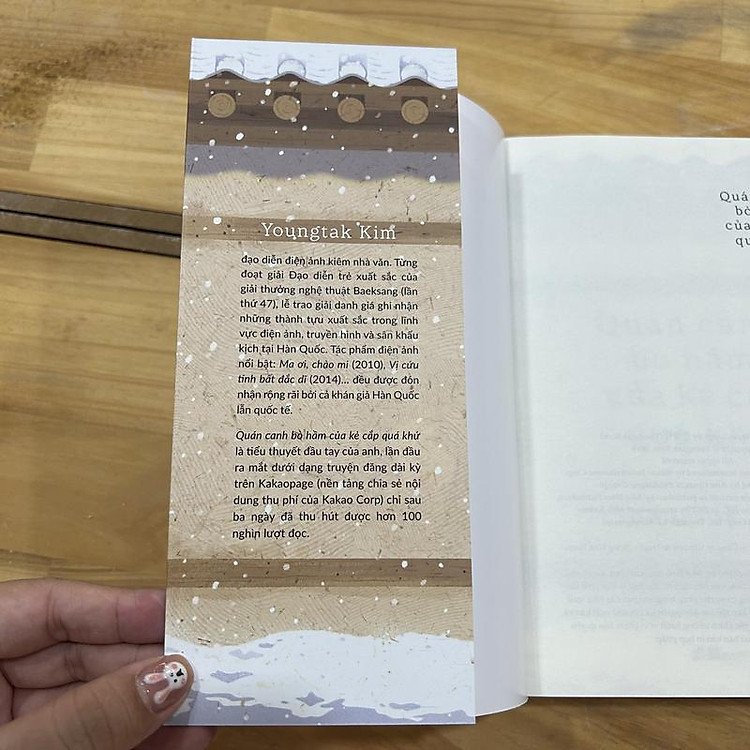 Youngtak Kim
đạo diễn điện ảnh kiêm nhà văn. Từng
đoạt giải Đạo diễn trẻ xuất sắc của
giải thưởng nghệ thuật Baeksang (lần
thứ 47), lễ trao giải danh giá ghi nhận
những thành tựu xuất sắc trong lĩnh
vực điện ảnh, truyền hình và sân khấu
kịch tại Hàn Quốc. Tác phẩm điện ảnh
nổi bật: Ma ơi, chào mi (2010), Vị cứu
tinh bất đắc dĩ (2014)... đều được đón
nhận rộng rãi bởi cả khán giả Hàn Quốc
lẫn quốc tế.
Quán canh bò hầm của kẻ cắp quá khứ
là tiểu thuyết đầu tay của anh, lần đầu
ra mắt dưới dạng truyện đăng dài kỳ
trên Kakaopage (nền tảng chia sẻ nội
dung thu phí của Kakao Corp) chỉ sau
ba ngày đã thu hút được hơn 100
nghìn lượt đọc.
Quá
bò
của
qu